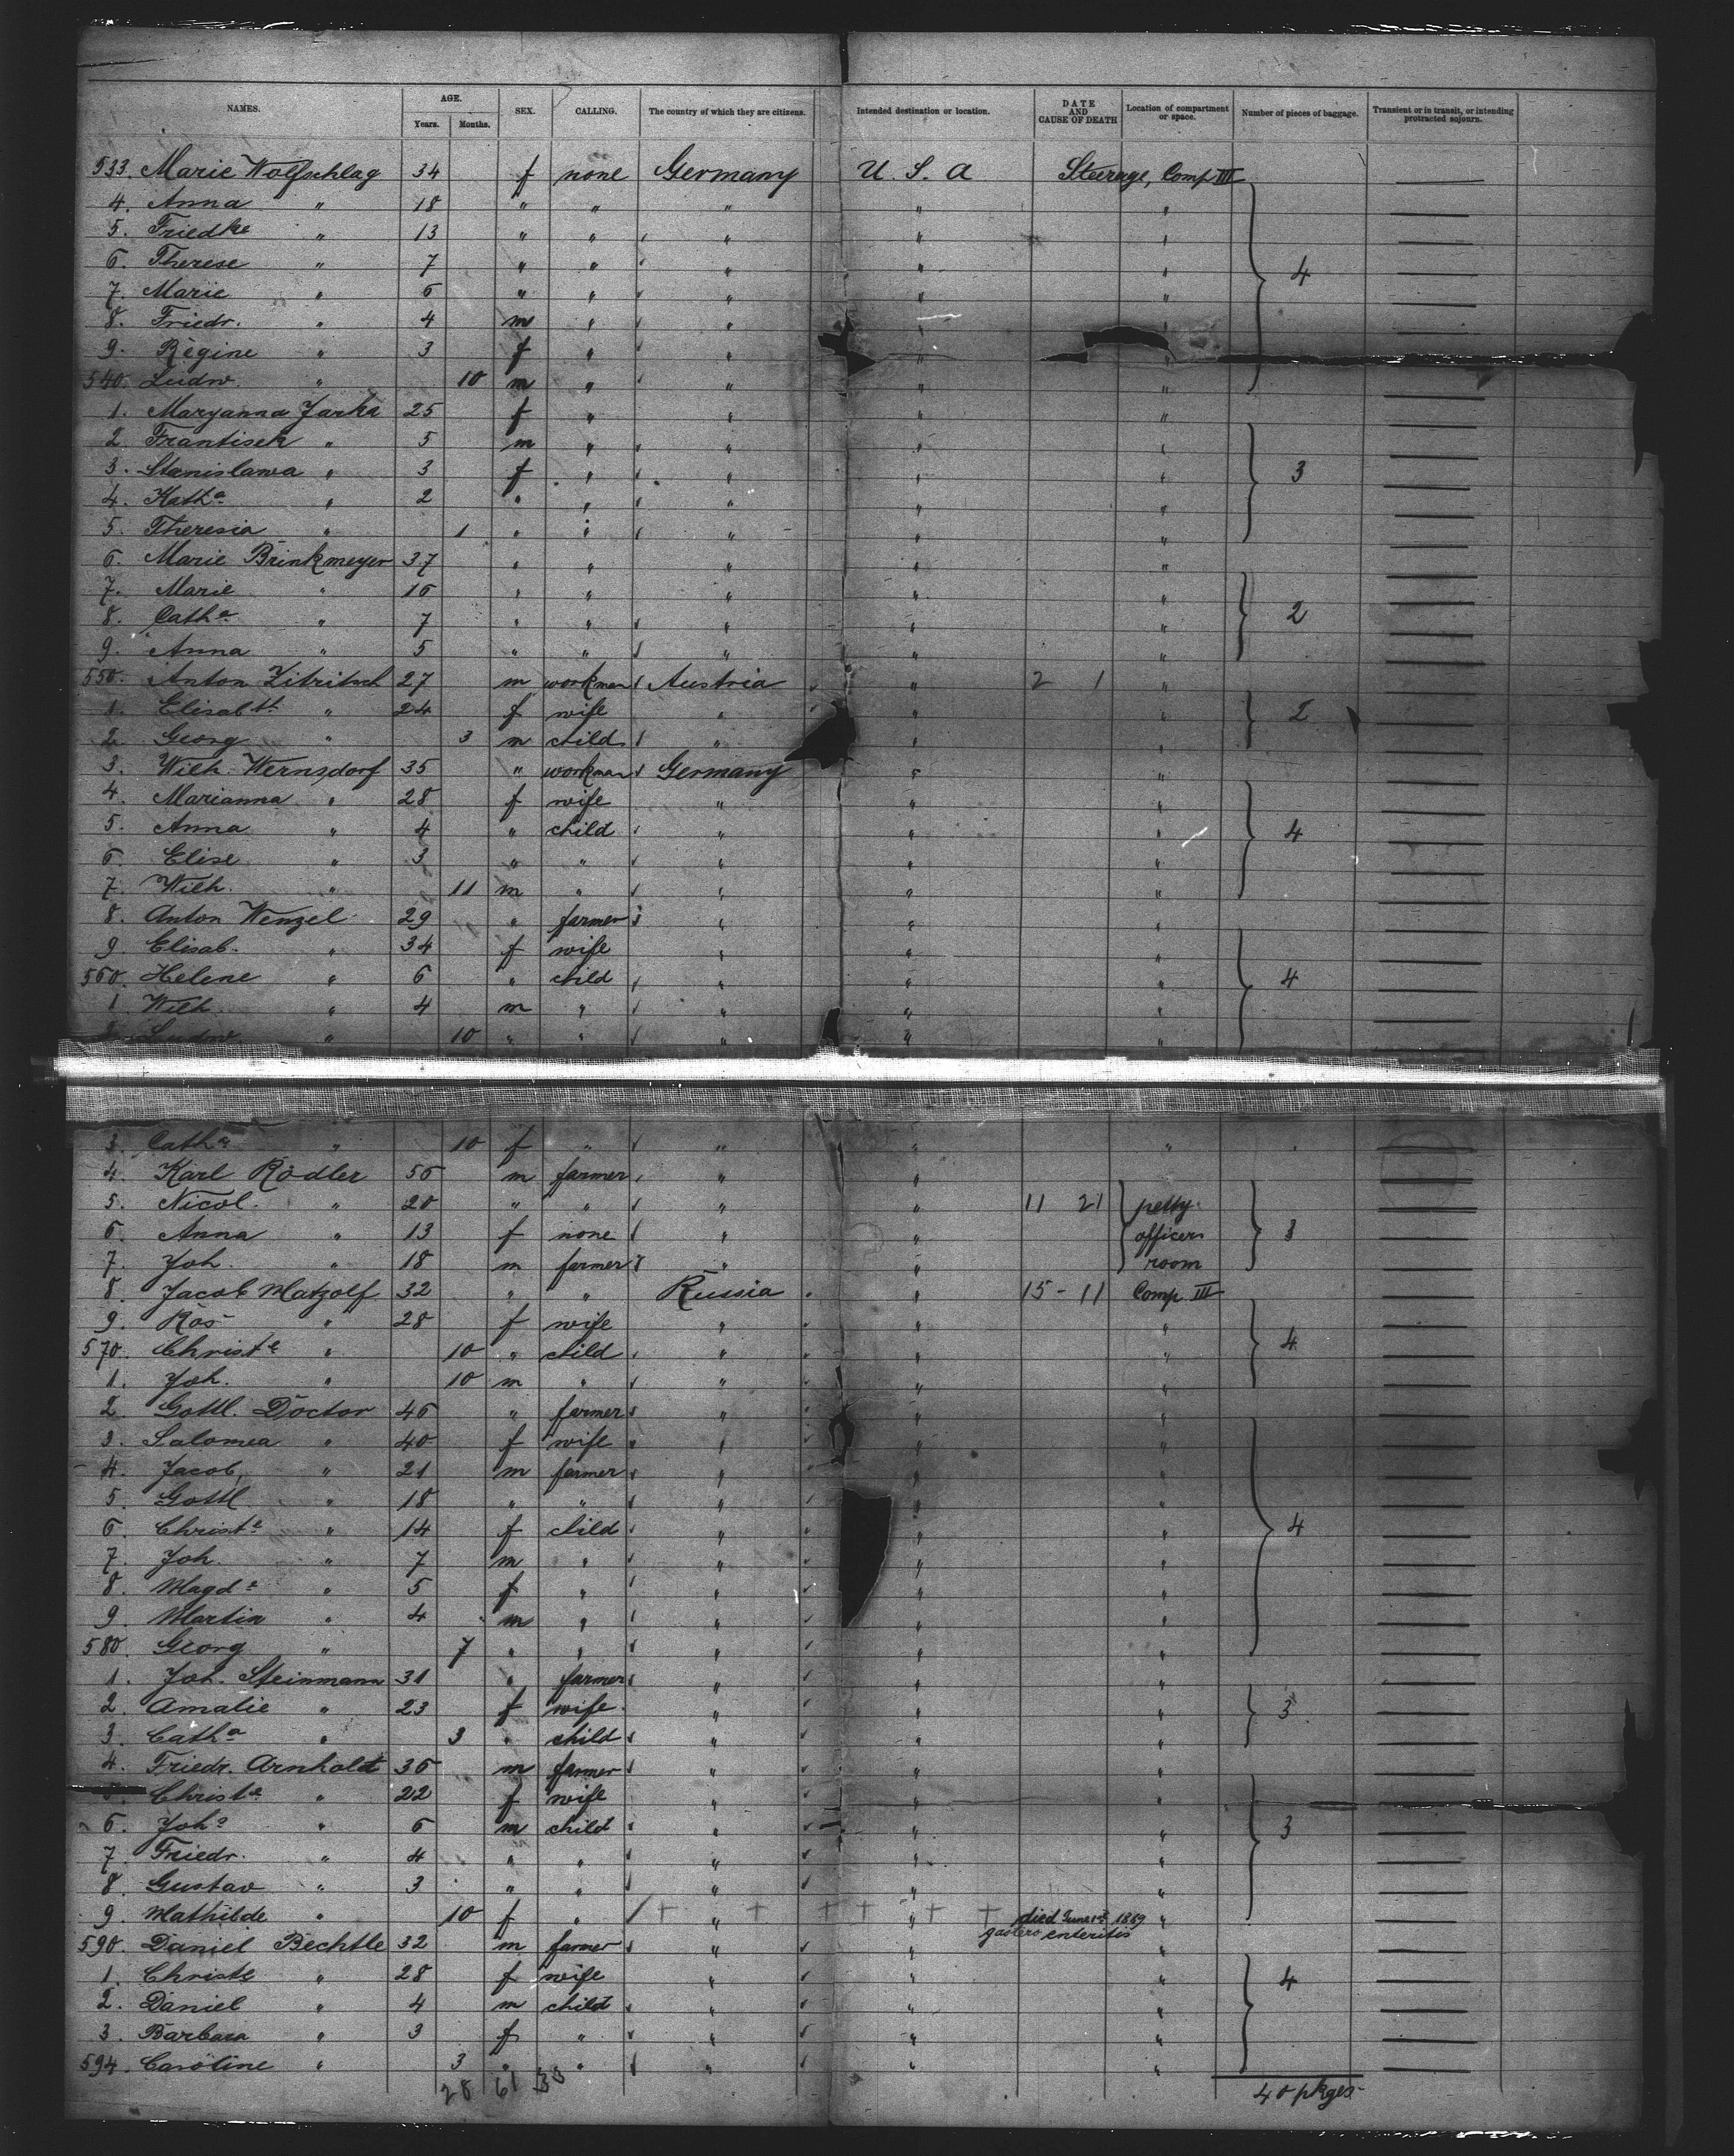 NAMES. AGE. Years. Months. SEX. CALLING. The country of which they are citizens. Intended destination or location. DATE AND CAUSE OF DEATH Location of compartment or space. Number of pieces of baggage. Transient or in transit, or intending protracted sojourn.
533. Marie Wolfschlag 34 f none Germany U. S. A Steerage, Comp III
4. Anna " 18 " " " " "
5. Friedke " 13 " " " " "
6. Therese " 7 " " " " " 4
7. Marie " 6 " " " " "
8. Friedr. " 4 m " " " "
9. Regine " 3 f " " " "
540. Ludw. " 10 m " " " "
1. Maryanna Jarka 25 f " " " "
2. Frantisek " 5 m " " " "
3. Stanislawa " 3 f " " " " 3
4. Katha " 2 " " " " "
5. Theresia " 1 " " " " "
6. Marie Brinkmeyer 37 " " " " "
7. Marie " 16 " " " " "
8. Catha " 7 " " " " " 2
9. Anna " 5 " " " " "
550. Anton Zitritsch 27 m workman Austria " 2 1 "
1. Elisabth " 24 f wife " " " 2
2. Georg " 3 m child " " "
3. Wilh. Wernsdorf 35 " workman Germany " "
4. Marianna " 28 f wife " " "
5. Anna " 4 " child " " " 4
6. Elise " 3 " " " " "
7. Wilh. " 11 m " " " "
8. Anton Wenzel 29 " farmer " " "
9. Elisab. " 34 f wife " " "
560. Helene " 6 " child " " " 4
1. Wilh. " 4 m " " " "
2. Ludw " 10 " " " " "
3. Catha " 10 f " " " "
4. Karl Rödler 56 m farmer " "
5. Nicol. " 20 " " " " 11 21 petty
6. Anna " 13 f none " " officers 3
7. Joh. " 18 m farmer " " room
8. Jacob Matzolf 32 " " Russia " 15 - 11 Comp III
9. Ros " 28 f wife " " "
570. Christe " 10 " child " " " 4
1. Joh. " 10 m " " " "
2. Gottl. Doctor 46 " farmer " " "
3. Salomea " 40 f wife " " "
4. Jacob, " 21 m farmer " " "
5. Gottl " 18 " " " " "
6. Christe " 14 f child " " " 4
7. Joh. " 7 m " " " "
8. Magde " 5 f " " " "
9. Martin " 4 m " " " "
580. Georg " 7 " " " " "
1. Joh. Steinmann 31 " farmer " " "
2. Amalie " 23 f wife " " " 3
3. Catha " 3 " child " " "
4. Friedr. Arnholdt 36 m farmer " " "
5. Christe " 22 f wife " " "
6. Joh " 6 m child " " " 3
7. Friedr. " 4 " " " " "
8. Gustav " 3 " " " " "
9. Mathilde " 10 f " " " died June 1st 1889 "
gastero enteritis
590. Daniel Bechtle 32 m farmer " " "
1. Christe " 28 f wife " " " 4
2. Daniel " 4 m child " " "
3. Barbara " 3 f " " " "
594. Caroline " 3 " " " " "
28 61 33 40 pkges.